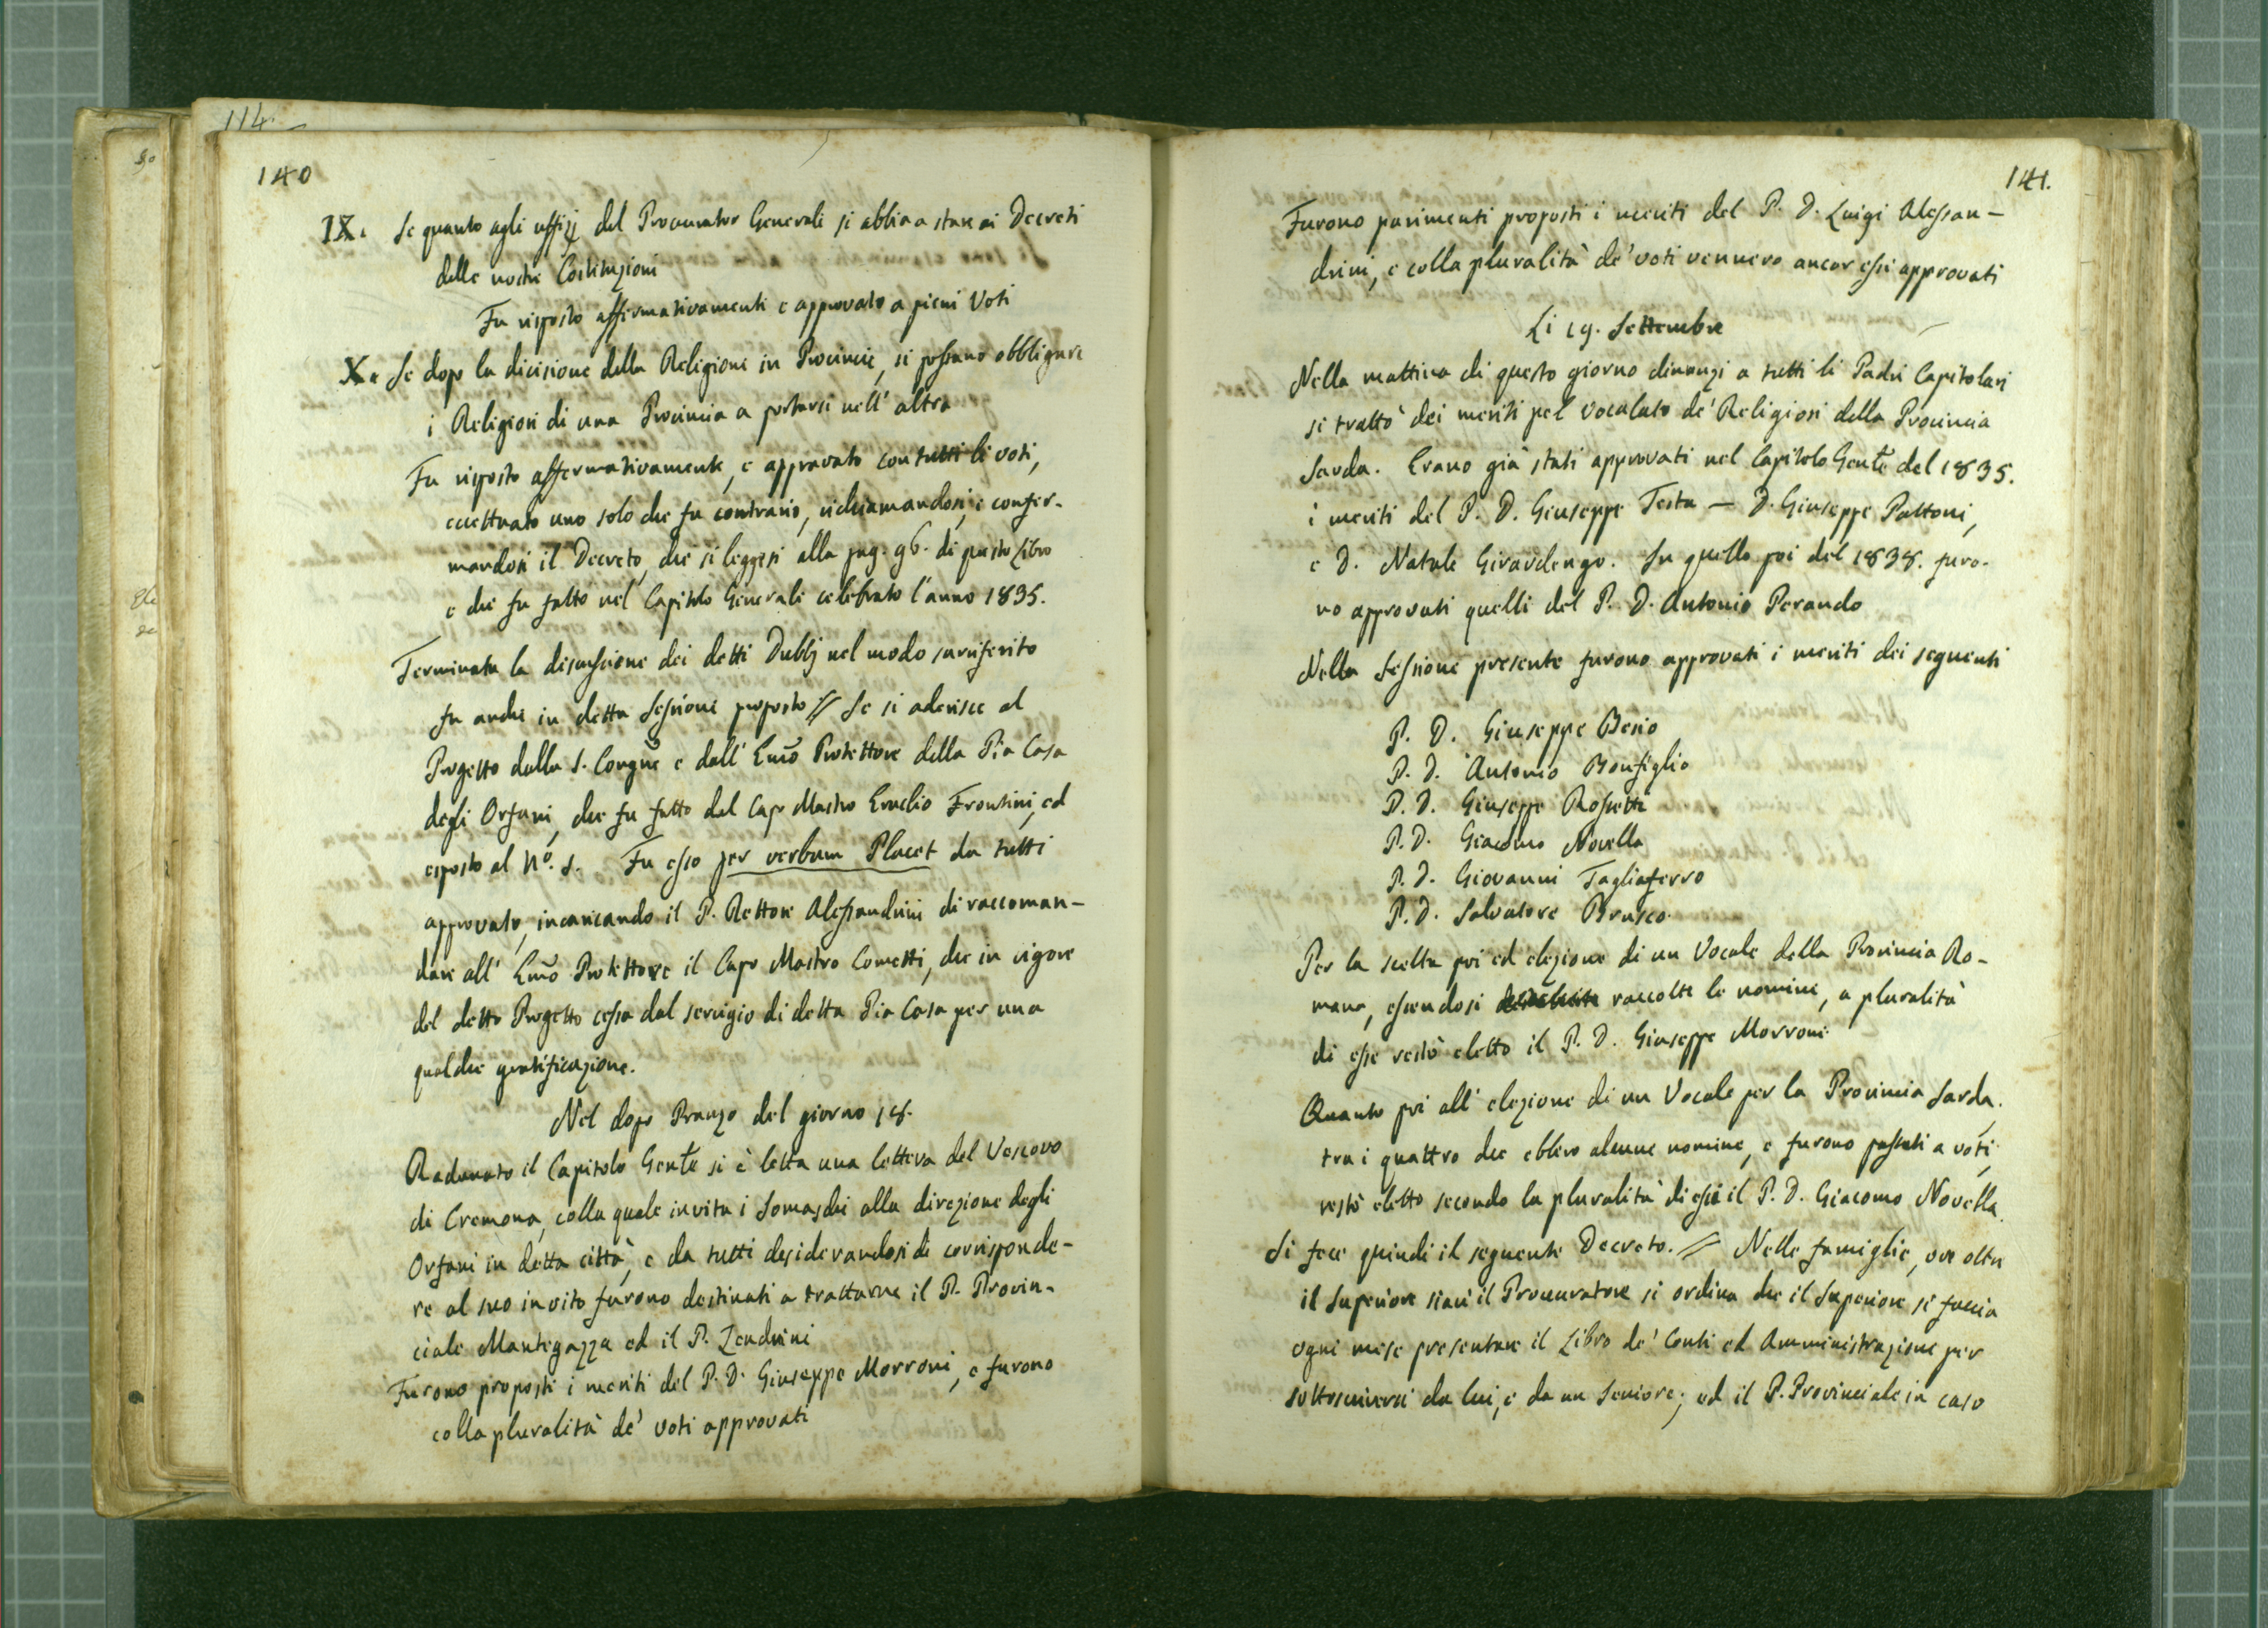 114.
140
IX. Se quanto agli uffizj del Procurator Generale si abbia a stare ai Decreti
delle nostre Costituzioni
Fu risposto affermativamente e approvato a pieni Voti
X. Se dopo la divisione della Religione in Provincie, si possano obbligare
i Religiosi di una Provincia a portarsi nell' altra
Fu risposto affermativamente, e approvato con tutti li voti,
eccettuato uno solo che fu contrario, richiamandosi, e confer-
mandosi il Decreto, che si leggesi alla pag. 96. di questo Libro
e che fu fatto nel Capitolo Generale celebrato l'anno 1835.
Terminata la discussione dei detti Dubbj nel modo surriferito
fu anche in detta Sessione proposto // Se si aderisce al
Progetto dalla S. Congne e dall' Emo Protettore della Pia Casa
degli Orfani, che fu fatto dal Capo Mastro Eraclio Frontini, ed
esposto al No. 1. Fu esso per verbum Placet da tutti
approvato, incaricando il P. Rettore Alessandrini di raccoman-
dare all' Emo Protettore il Capo Mastro Cometti, che in vigore
del detto Progetto cessa dal servigio di detta Pia Casa per una
qualche gratificazione.
Nel dopo Pranzo del giorno 18.
Radunato il Capitolo Genle si è letta una lettera del Vescovo
di Cremona, colla quale invita i Somaschi alla direzione degli
Orfani in detta città, e da tutti desiderandosi di corrisponde-
re al suo invito furono destinati a trattarne il P. Provin-
ciale Mantegazza ed il P. Zendrini
Furono proposti i meriti del P. D. Giuseppe Morroni, e furono
colla pluralità de' voti approvati
141.
Furono parimenti proposti i meriti del P. D. Luigi Alessan-
drini, e colla pluralità de' voti vennero ancor essi approvati
Li 19. Settembre
Nella mattina di questo giorno dinanzi a tutti li Padri Capitolari
si trattò dei meriti pel vocalato de' Religiosi della Provincia
Sarda. Erano già stati approvati nel Capitolo Genle del 1835.
i meriti del P. D. Giuseppe Testa — D. Giuseppe Pattoni,
e D. Natale Girardengo. In quello poi del 1838. furo-
no approvati quelli del P. D. Antonio Perando
Nella Sessione presente furono approvati i meriti dei seguenti
P. D. Giuseppe Besio
P. D. Antonio Bonfiglio
P. D. Giuseppe Rossetti
P. D. Giacomo Novella
P. D. Giovanni Tagliaferro
P. D. Salvatore Brusco
Per la scelta poi ed elezione di un Vocale della Provincia Ro-
mana, essendosi raccolte le nomine, a pluralità
di esse restò eletto il P. D. Giuseppe Morroni
Quanto poi all' elezione di un Vocale per la Provincia Sarda,
tra i quattro che ebbero alcune nomine, e furono passati a voti,
restò eletto secondo la pluralità di essi il P. D. Giacomo Novella.
Si fece quindi il seguente Decreto. // Nelle famiglie, ove oltre
il Superiore siavi il Procuratore si ordina che il Superiore si faccia
ogni mese presentare il Libro de' Conti ed Amministrazione per
sottoscriversi da lui, e da un Seniore; ed il P. Provinciale in caso